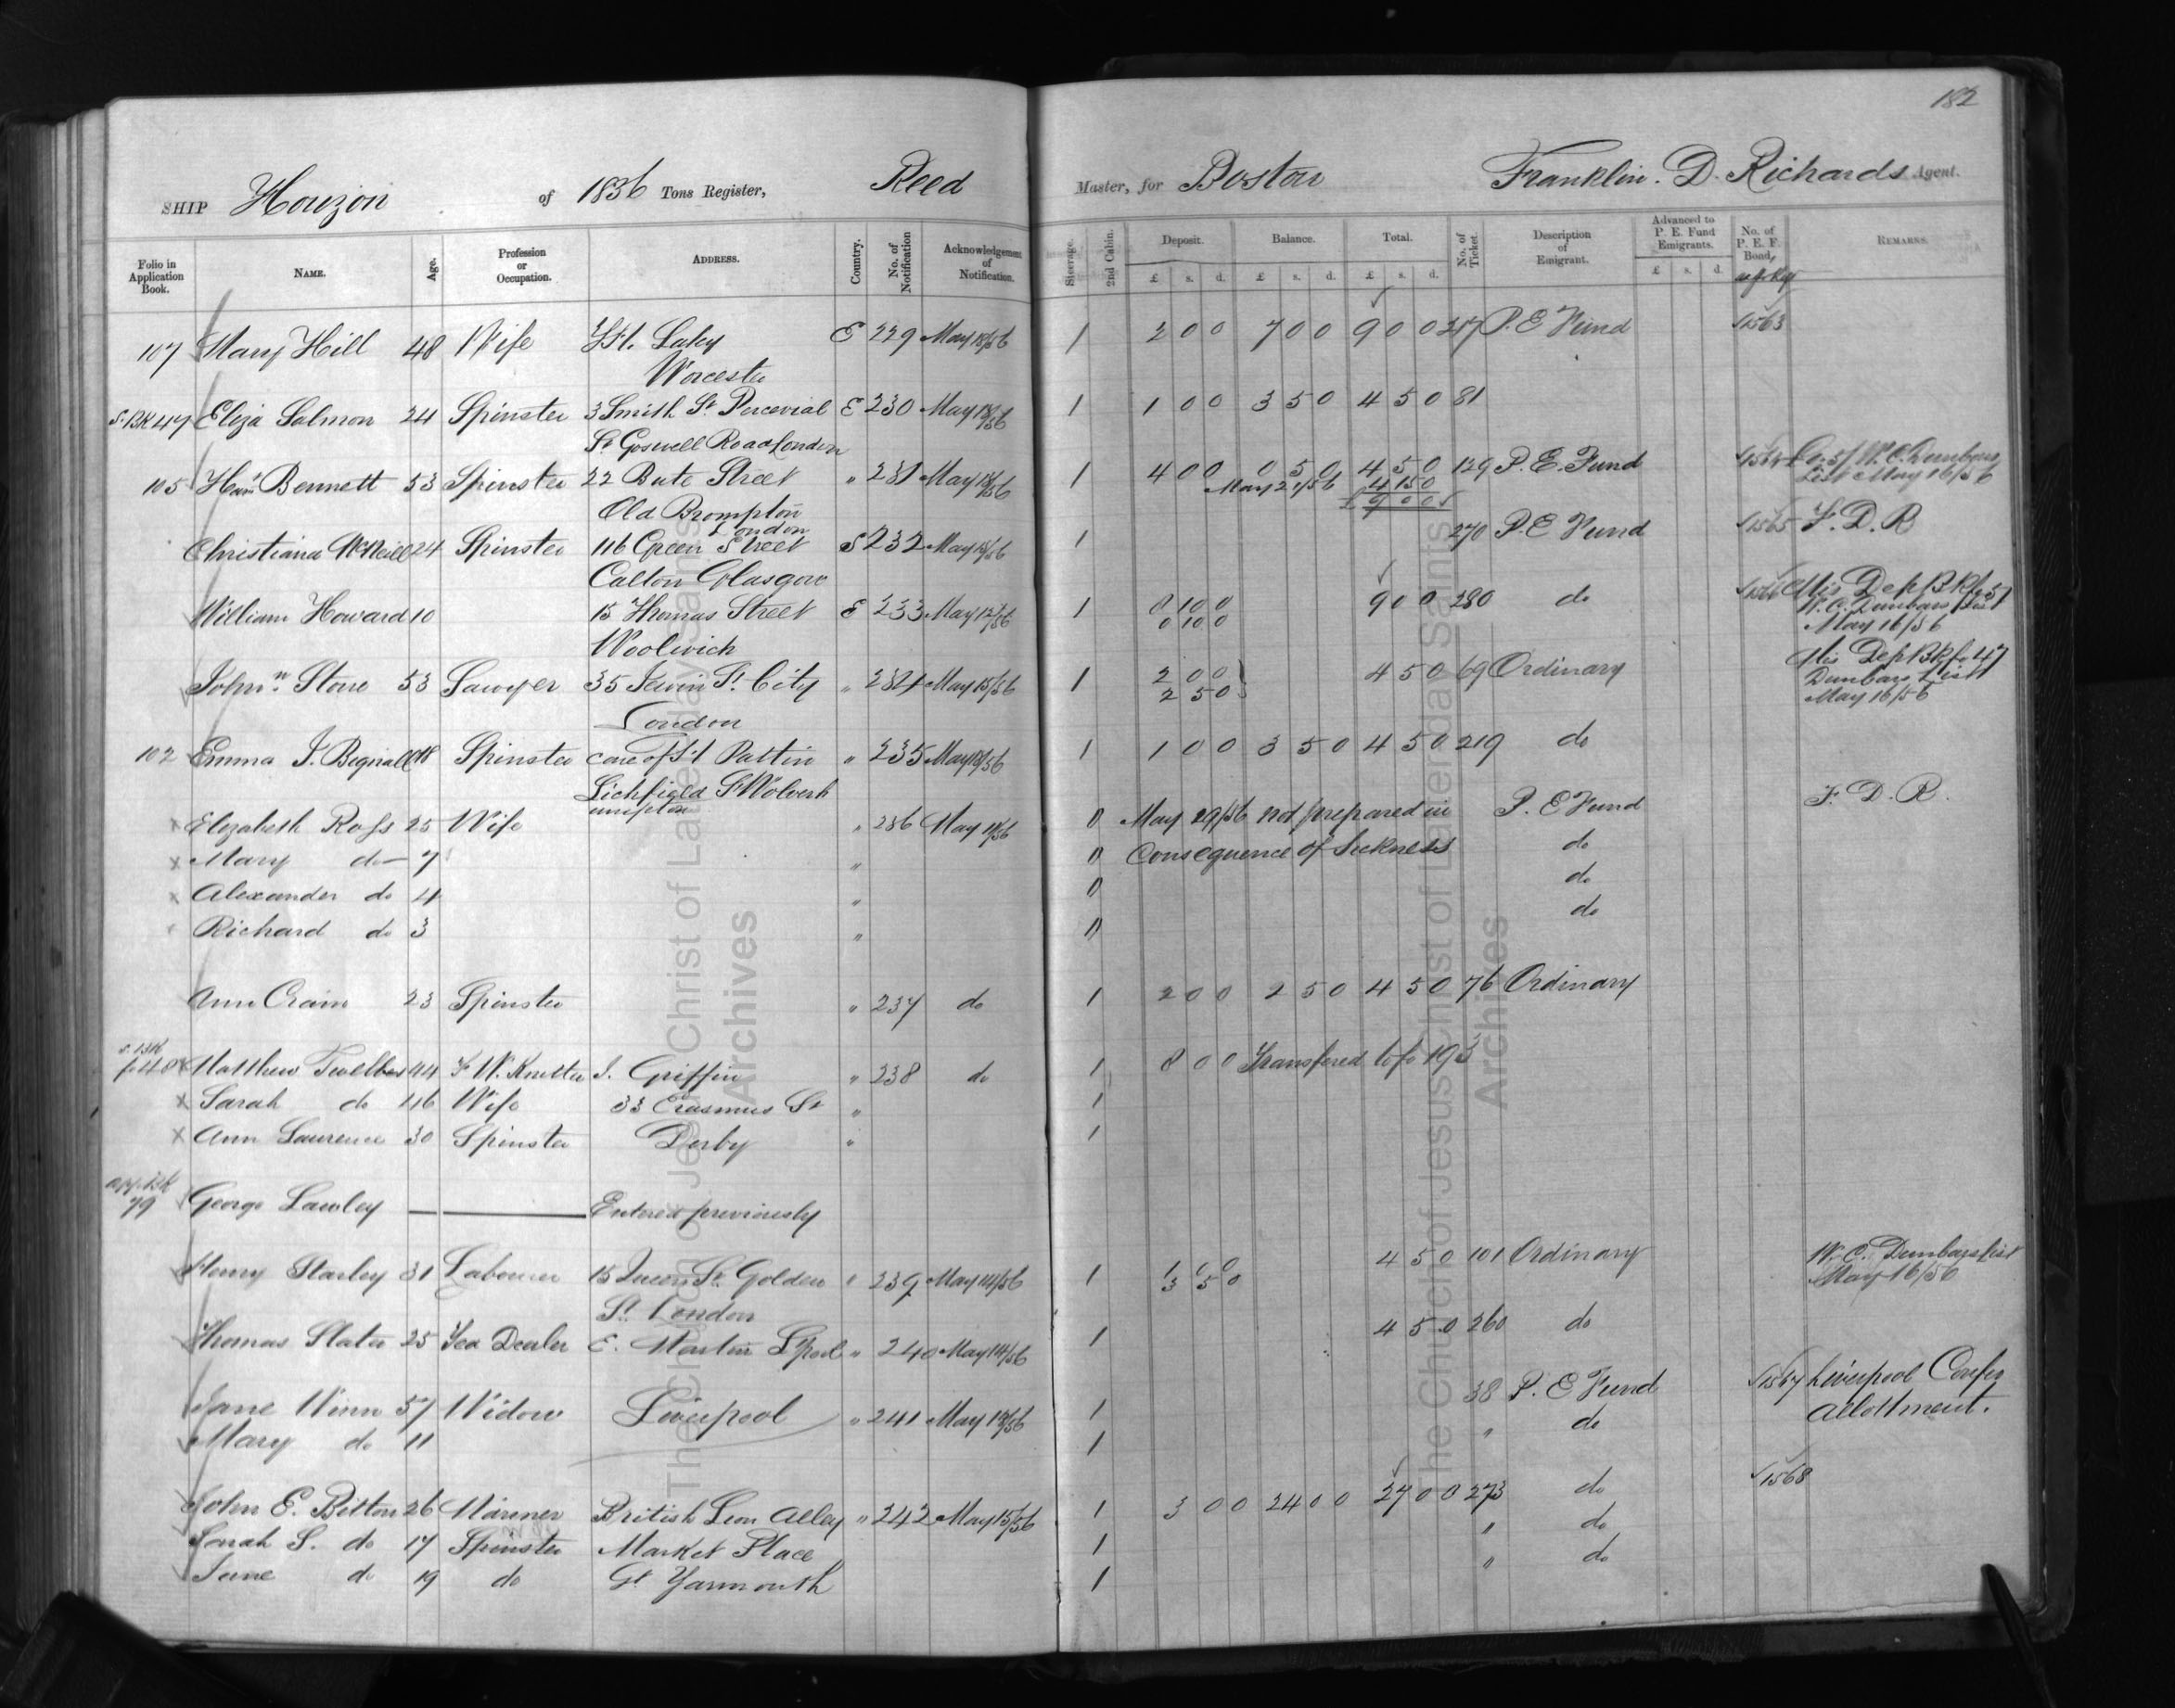 182
SHIP Horizon of 1836 Tons Register, Reed Master, for Boston Franklin. D. Richards Agent.
Folio in Application Book. NAME. Age. Profession or Occupation. ADDRESS. Country. No. of Notification Acknowledgement of Notification. Steerage. 2nd Cabin. Deposit. £ s. d. Balance. £ s. d. Total. £ s. d. No. of Ticket. Description of Emigrant. Advanced to P. E. Fund Emigrants. £ s. d. No. of P. E. F. Bond, REMARKS.
107 Mary Hill 48 Wife Laky E 229 May 13/56 1 2 0 0 7 0 0 9 0 0 217 P. E Fund 1563
Worcester
S. BK 47 Eliza Salmon 24 Spinster 3 Smith St Percevial E 230 May 13/56 1 1 0 0 3 5 0 4 5 0 81
St Goswell Road London
105 Han. Bennett 53 Spinster 22 Bute Street " 231 May 13/56 1 4 0 0 0 5 0 4 5 0 129 P. E. Fund 1564 W. C. Dunbars
May 21/56 4 15 0 List May 16/56
Old Brompton £ 9 0 0
London
Christiana McNeill 24 Spinster 116 Green Street S 232 May 13/56 1 270 P. E Fund 1565 F. D. R
Calton Glasgow
William Howard 10 15 Thomas Street E 233 May 12/56 1 8 10 0 9 0 0 280 do 1566 His Dep BK fo 51
0 10 0 W. C. Dunbars List
Woolwich May 16/56
John Stone 53 Sawyer 35 Jewin St. City " 234 May 15/56 1 2 0 0 4 5 0 69 Ordinary His Dep BK fo 47
2 5 0 Dunbars List
London May 16/56
102 Emma J. Bignall 18 Spinster care of Pattin " 235 May 13/56 1 1 0 0 3 5 0 4 5 0 219 do
Lichfield St Wolverh
ampton
Elizabeth Ross 25 Wife " 236 May 11/56 0 May 29/56 not prepared in P. E Fund F. D. R.
Mary do 7 " 0 Consequence of Sickness do
Alexander do 4 " 0 do
Richard do 3 " 0 do
Ann Crain 23 Spinster " 237 do 1 2 0 0 2 5 0 4 5 0 76 Ordinary
S. BK
fo 48 Matthew 44 F. W. Knitter J. Griffin " 238 do 1 8 0 0 Transfered to fo 193
Sarah do 46 Wife 33 Erasmus St " 1
Ann Laurence 30 Spinster Derby " 1
app. BK
79 George Lawley Entered previously
Henry Starley 31 Labourer 15 Queen St. Golden " 239 May 14/56 1 1 0 0 4 5 0 101 Ordinary W. C. Dunbars list
3 5 0 May 16/56
St. London
Thomas Slater 25 Tea Dealer E. Martin L'Pool " 240 May 14/56 1 4 5 0 260 do
Jane Winn 57 Widow Liverpool " 241 May 13/56 1 38 P. E Fund 1567 Liverpool Confer
Mary do 11 1 " do allottment.
John E. Bitton 26 Mariner British Lion Alley " 242 May 15/56 1 3 0 0 24 0 0 27 0 0 273 do 1568
Sarah S. do 17 Spinster Market Place 1 " do
Jane do 19 do Gt Yarmouth 1 " do
The Church of Jesus Christ of Latter-day Saints
Archives
The Church of Jesus Christ of Latter-day Saints
Archives